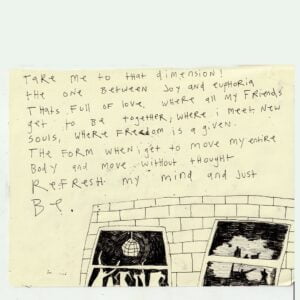 Take me to that dimension!
the one between Joy and euphoria
Thats full of love, where all my Friends
get to be together, where i meet new
souls, where Freedom is a given.
The form when i get to move my entire
Body and move without thought
Refresh my mind and just
Be.